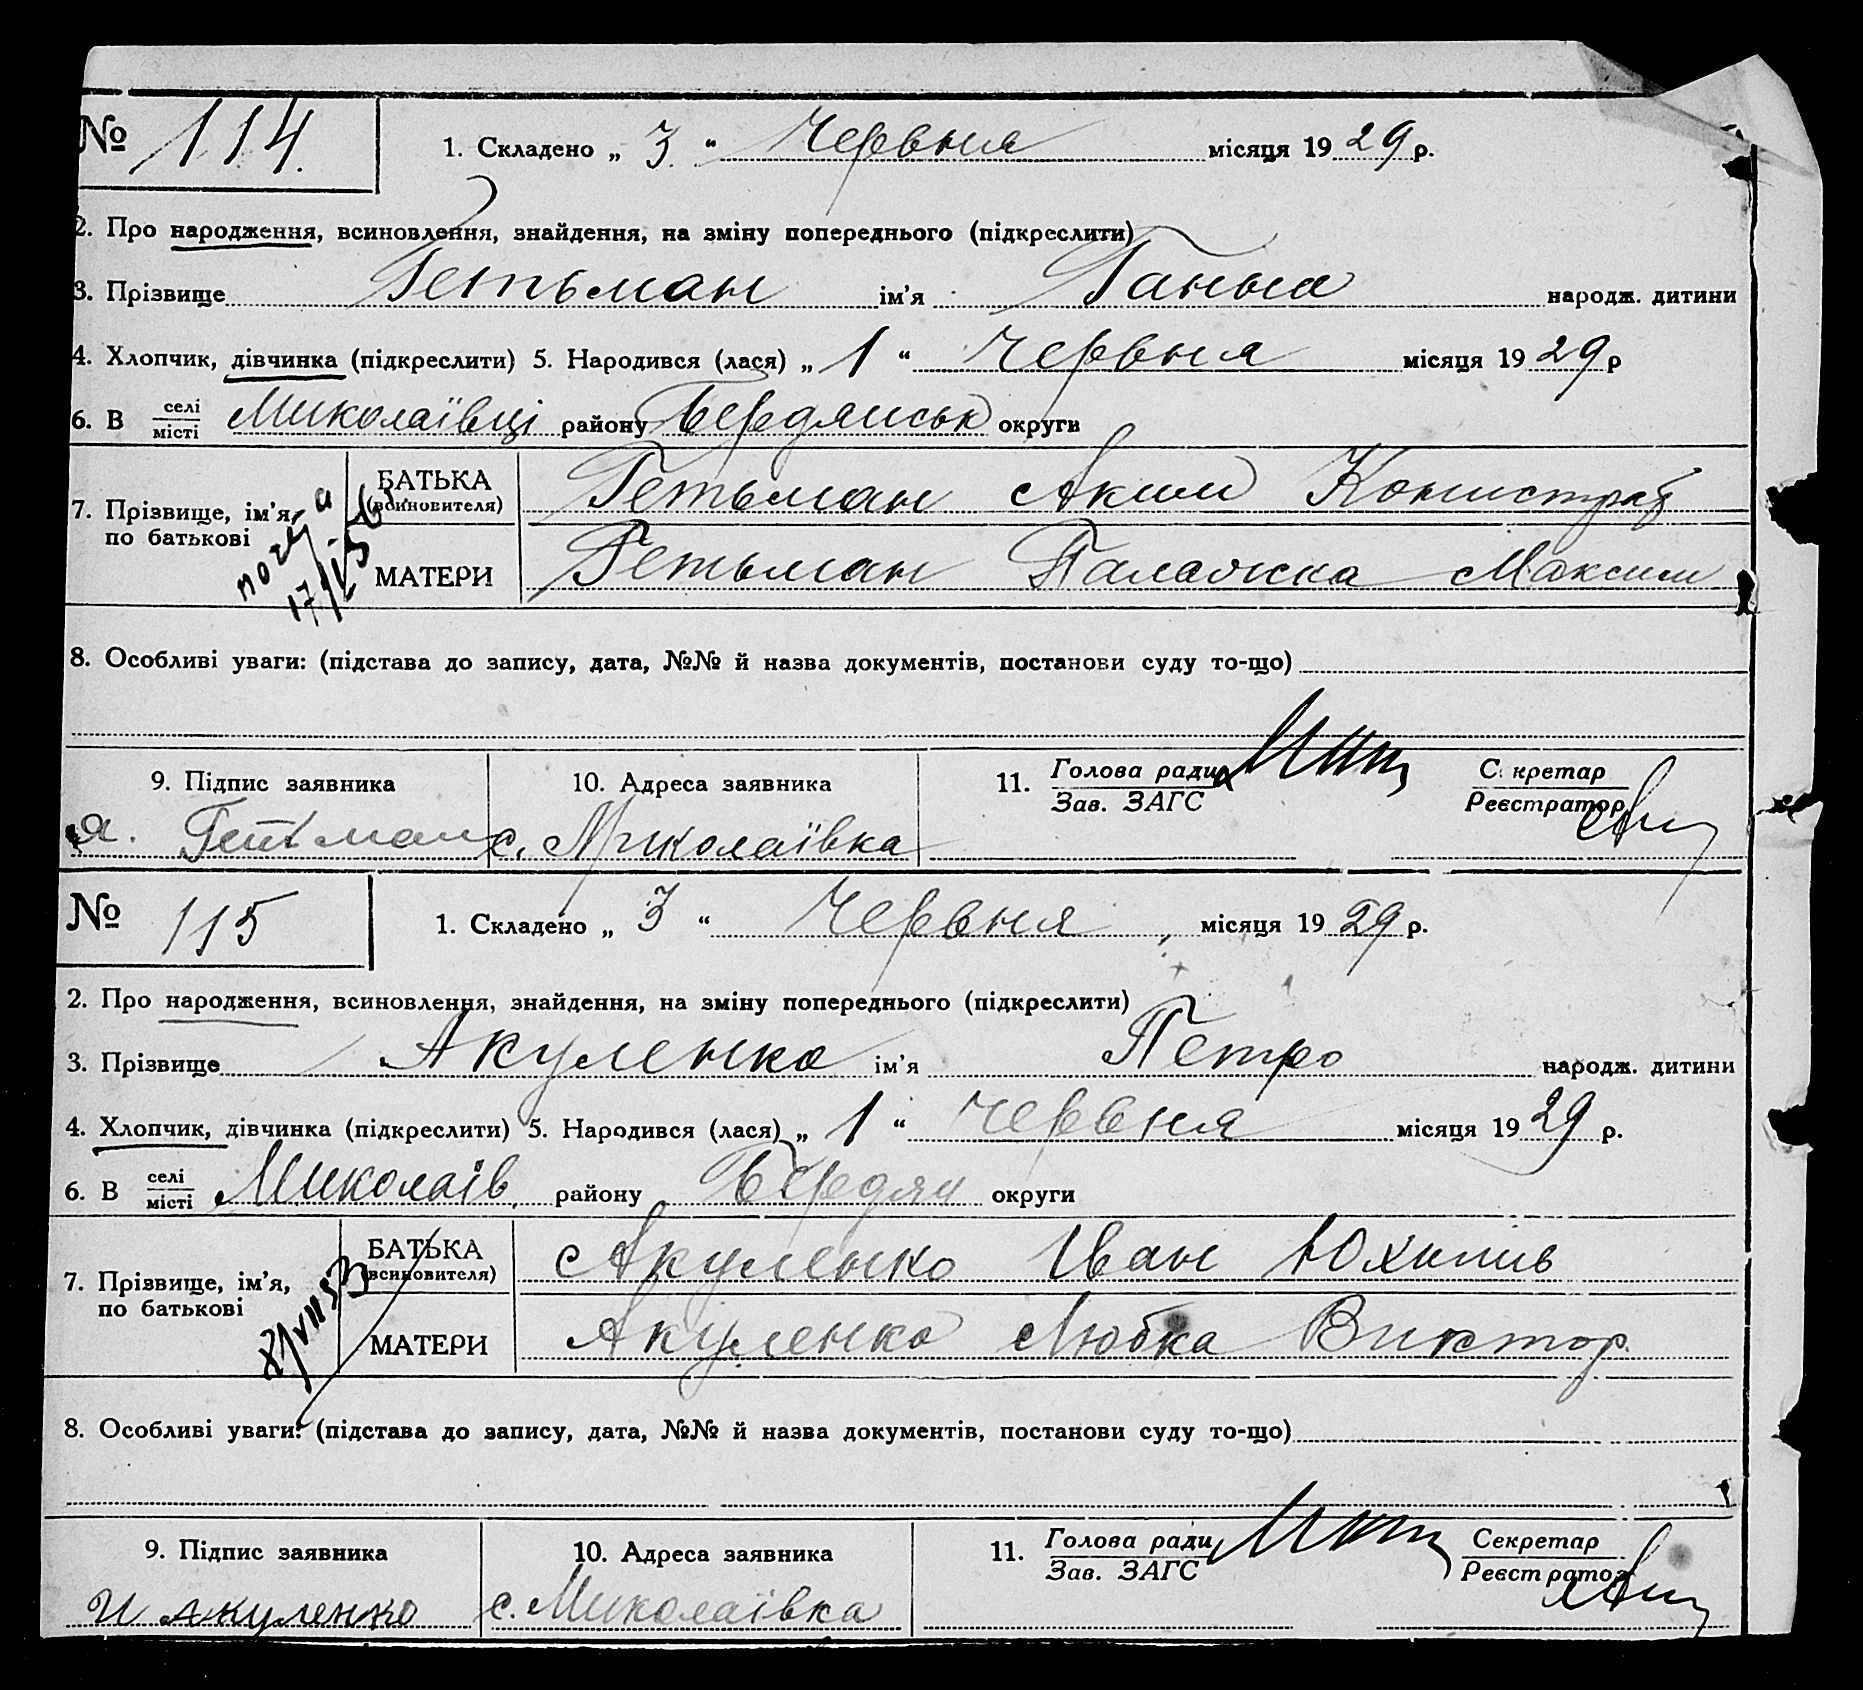 № 114. 1. Складено „ 3 “ Червня місяця 1929 р.
2. Про народження, всиновлення, знайдення, на зміну попереднього (підкреслити)
3. Прізвище Гетьман ім'я Ганна народж. дитини
4. Хлопчик, дівчинка (підкреслити) 5. Народився (лася) „ 1 “ Червня місяця 1929 р
6. В селі місті Миколаївці району Бердянськ округи
7. Прізвище, ім'я, по батькові
БАТЬКА (всиновителя) Гетьман Аким
МАТЕРИ Гетьман Палажка Максим
8. Особливі уваги: (підстава до запису, дата, №№ й назва документів, постанови суду то-що)
9. Підпис заявника 10. Адреса заявника 11. Голова ради Зав. ЗАГС Секретар Реєстратор
а. Гетьман с. Миколаївка
№ 115 1. Складено „ 3 “ Червня місяця 1929 р.
2. Про народження, всиновлення, знайдення, на зміну попереднього (підкреслити)
3. Прізвище Акуленко ім'я Петро народж. дитини
4. Хлопчик, дівчинка (підкреслити) 5. Народився (лася) „ 1 “ червня місяця 1929 р.
6. В селі місті Миколаїв району Бердян округи
7. Прізвище, ім'я, по батькові
БАТЬКА (всиновителя) Акуленко Іван Юхимів
МАТЕРИ Акуленко Любка Виктор.
8. Особливі уваги: (підстава до запису, дата, №№ й назва документів, постанови суду то-що)
9. Підпис заявника 10. Адреса заявника 11. Голова ради Зав. ЗАГС Секретар Реєстратор
И Акуленко с. Миколаївка